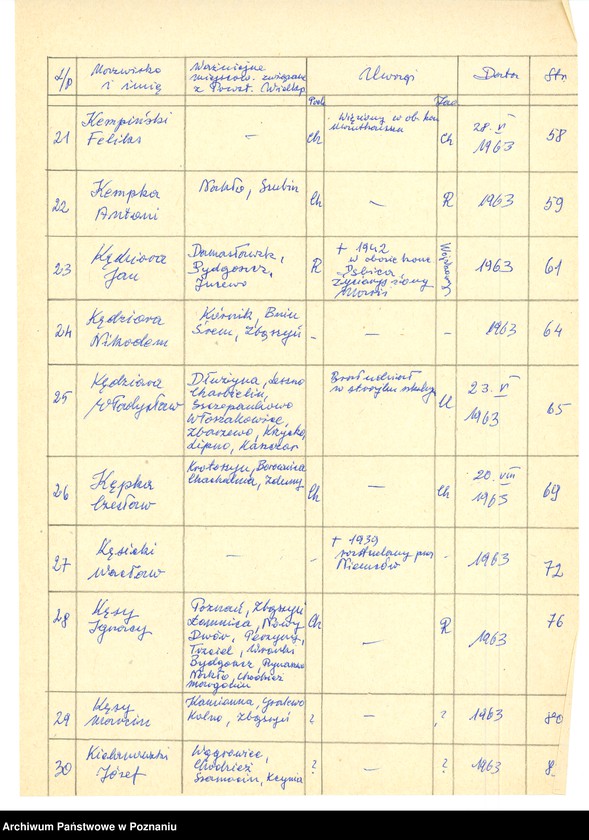 L/p Nazwisko i imię Ważniejsze miejscow. związane z Powst. Wielkp Uwagi Data Str
Poch Zaw
21 Kempiński Feliks – Ch Więziony w ob. kon Mauthausen Ch 28. VI 1963 58
22 Kempka Antoni Nakło, Szubin Ch – R 1963 59
23 Kędziora Jan Damasławek, Bydgoszcz, R + 1942 w obozie konc 1963 61
24 Kędziora Nikodem Kórnik, Bnin Śrem, Zbąszyń – – – 1963 64
25 Kędziora Władysław Dłużyna, Leszno Szczepankowo Włoszakowice, Zbarzewo, Krzycko, Lipno, Brał udział w strajku szkolny 23. VI 1963 65
26 Kępka Czesław Krotoszyn, Borownica Zduny Ch – Ch 20. VIII 1963 69
27 Kęsicki Wacław – – + 1939 rozstrzelany przez Niemców – 1963 72
28 Kęsy Ignacy Poznań, Zbąszyń Łomnica, Nowy Dwór, Trzciel, Wronki Bydgoszcz, Rynarzewo Nakło, Chodzież Ch – R 1963 76
29 Kęsy Marcin Kamionna, Kolno, Zbąszyń ? – ? 1963 80
30 Kielanowski Józef Wągrowiec, Chodzież Szamocin, Kcynia ? – ? 1963 8
Archiwum Państwowe w Poznaniu